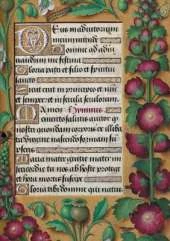 Deus in adiutorium
meum intende
Domine ad adiu
uandum me festina
Gloria patri et filio et spiritui
sancto
Sicut erat in principio et nunc
et semper et in secula seculorum
Amen Hymnus
Memento salutis auctor q
nostri quondam corporis ex illiba
ta virgine nascendo formam sum
pseris
Maria mater gratie mater mi
sericordie tu nos ab hoste protege
et hora mortis suscipe
Gloria tibi domine qui natus